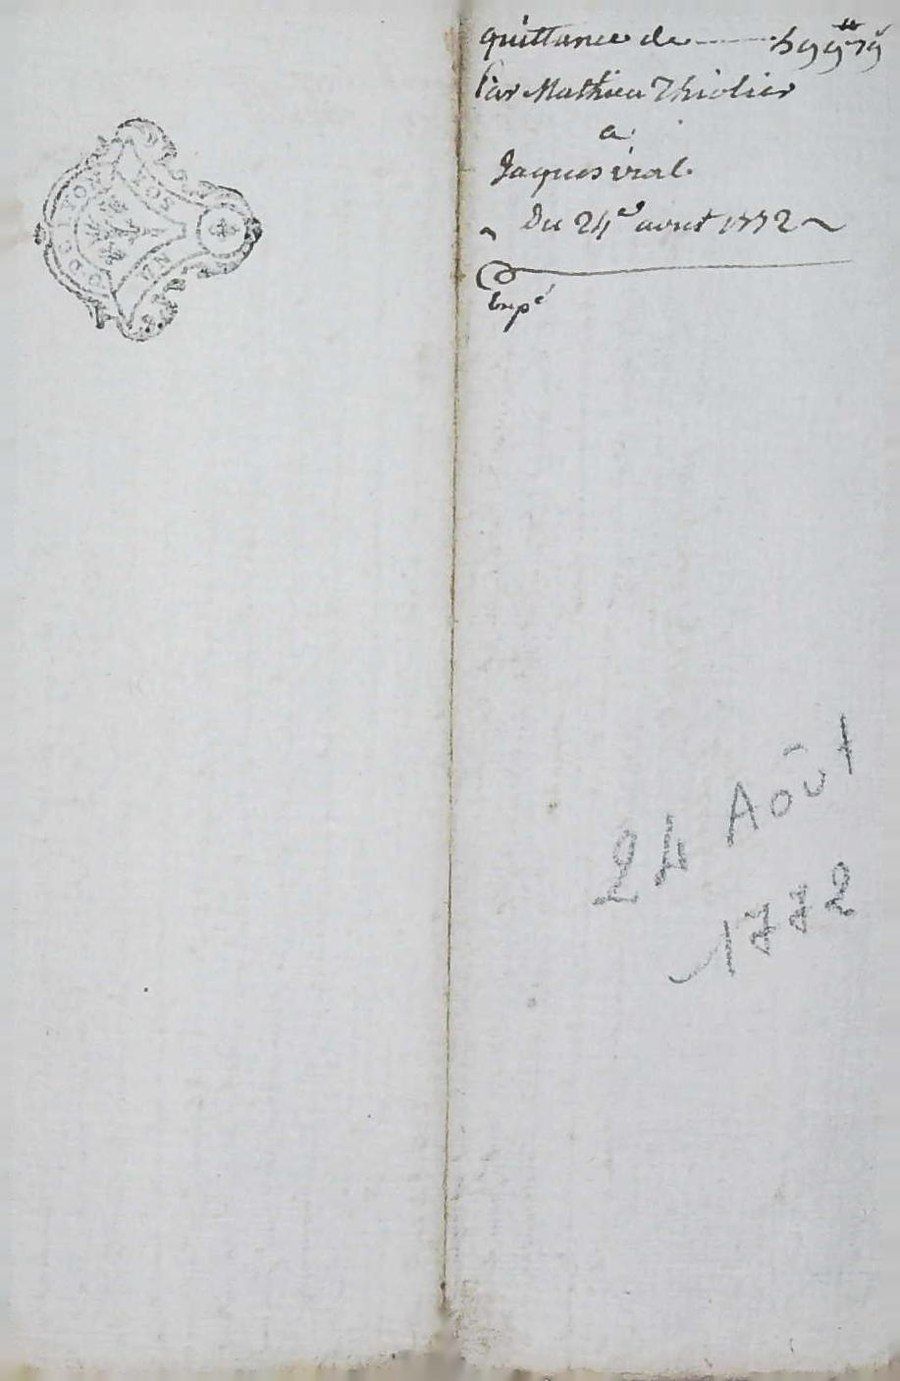 quittance de ——— 599# 19s
Par Mathieu Thiolier
a
Jaques vial
~ Du 24e aout 1772 ~
Exp é
24 Août
1772